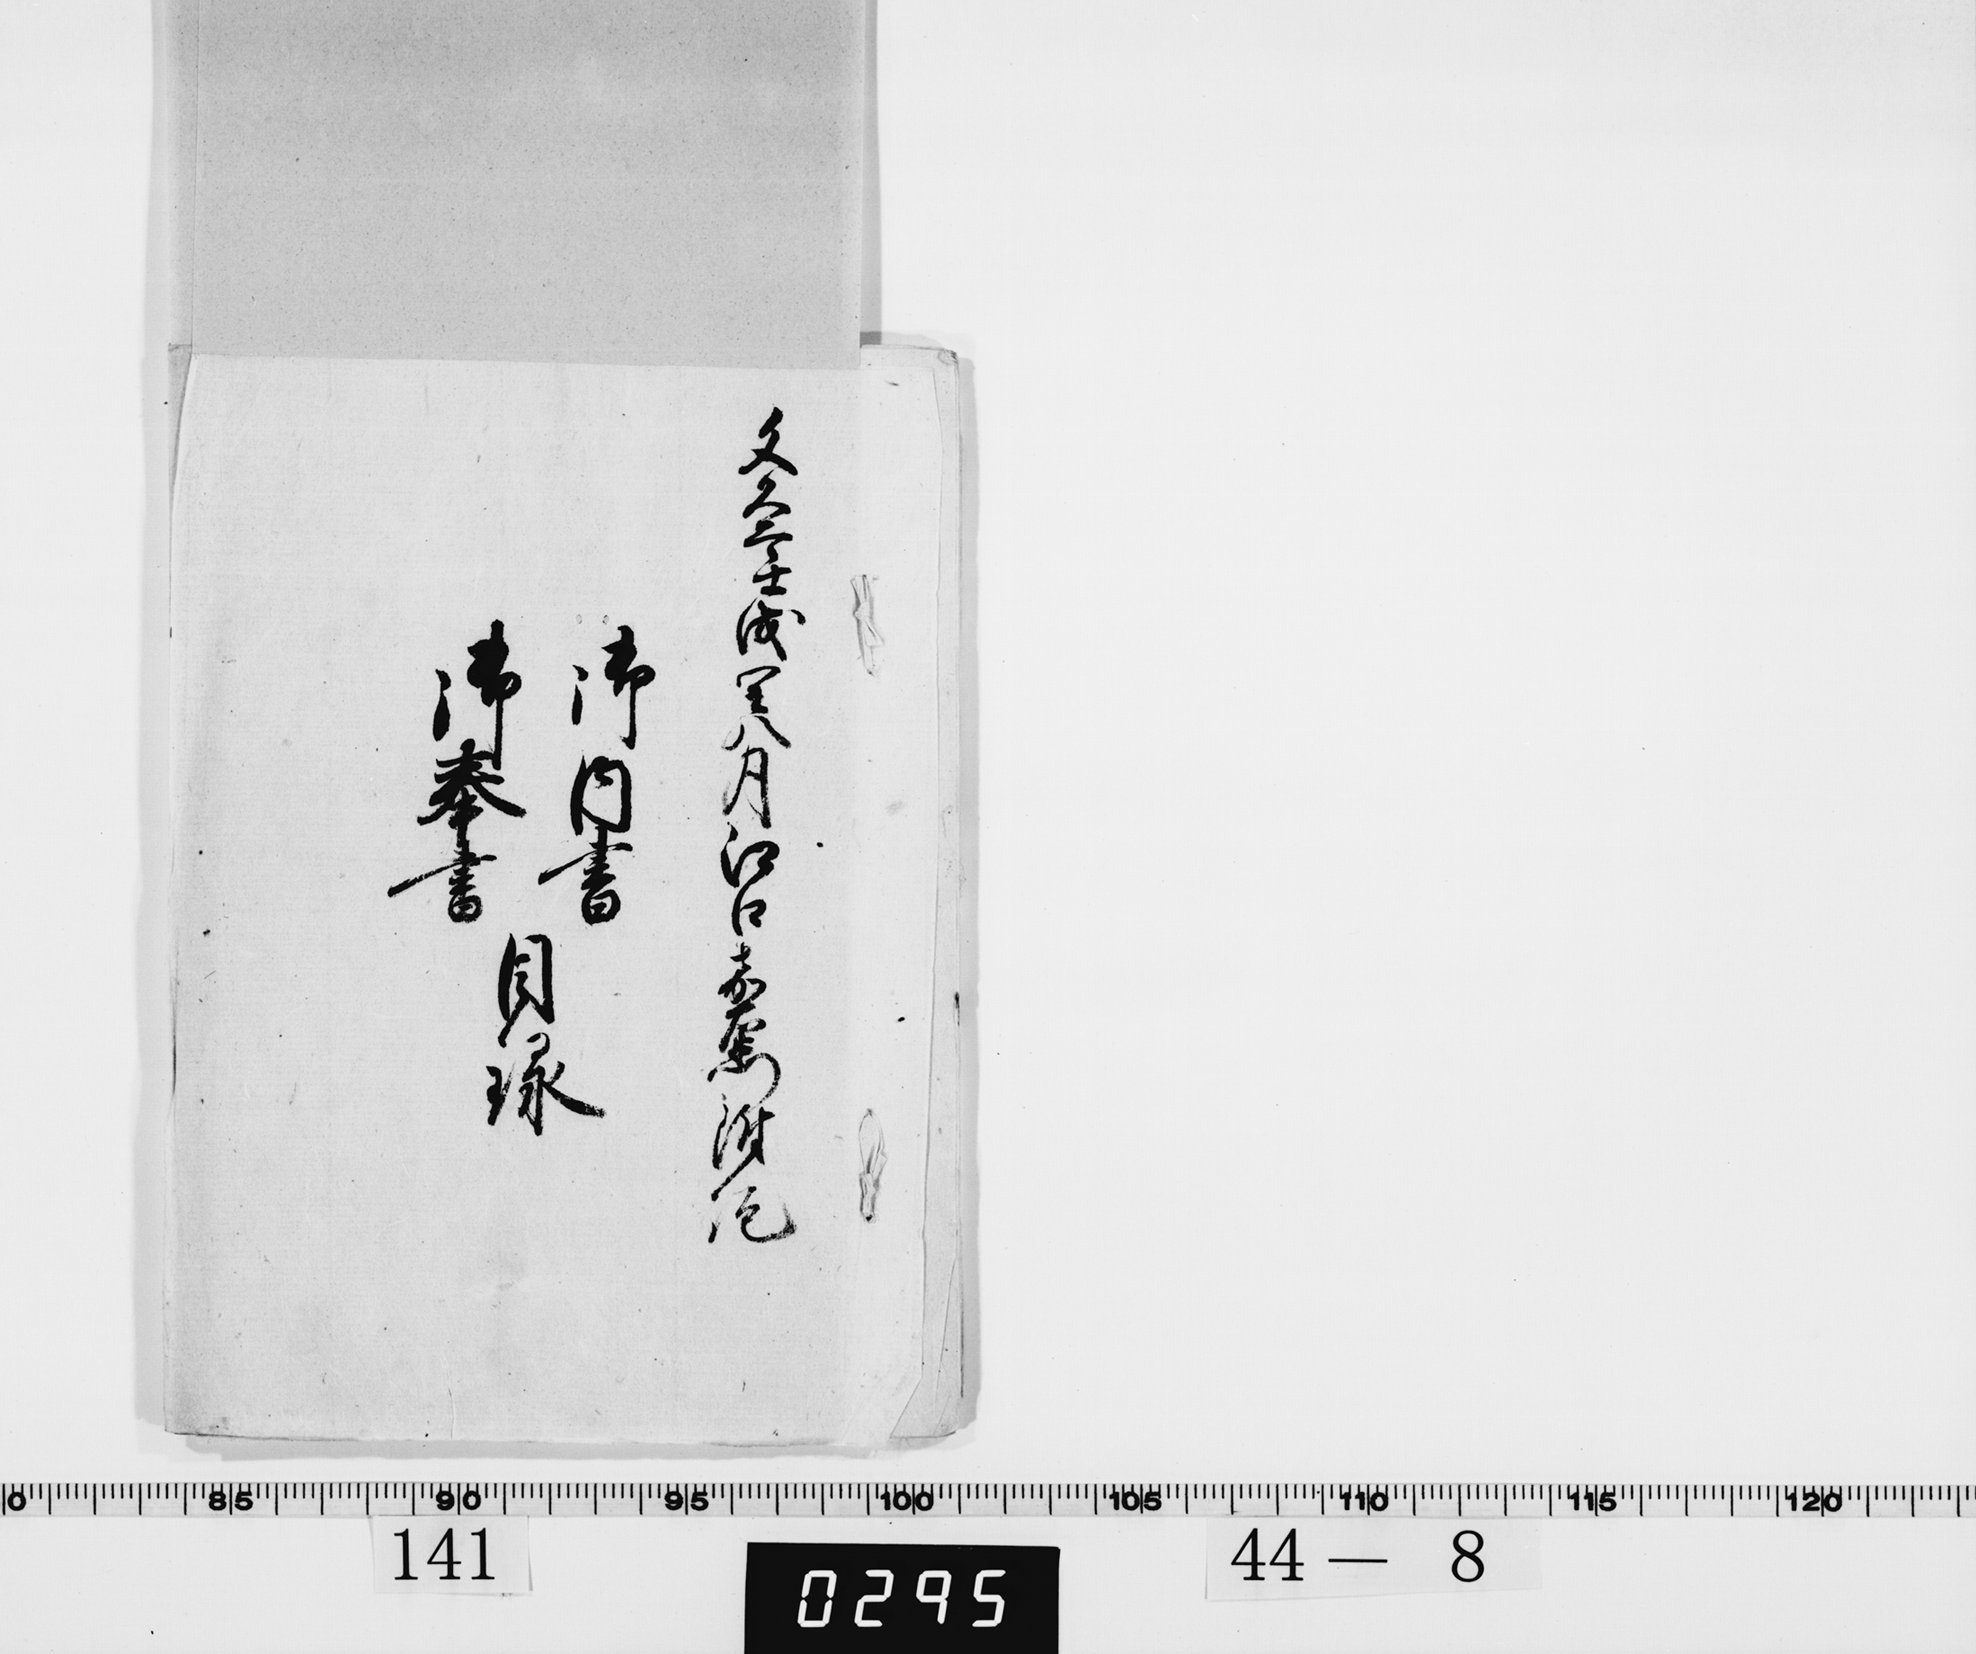 文久二壬戌閏八月江口嘉馬附託
御内書
御奉書
目録
85 90 95 100 105 110 115 120
141
0295
44 — 8